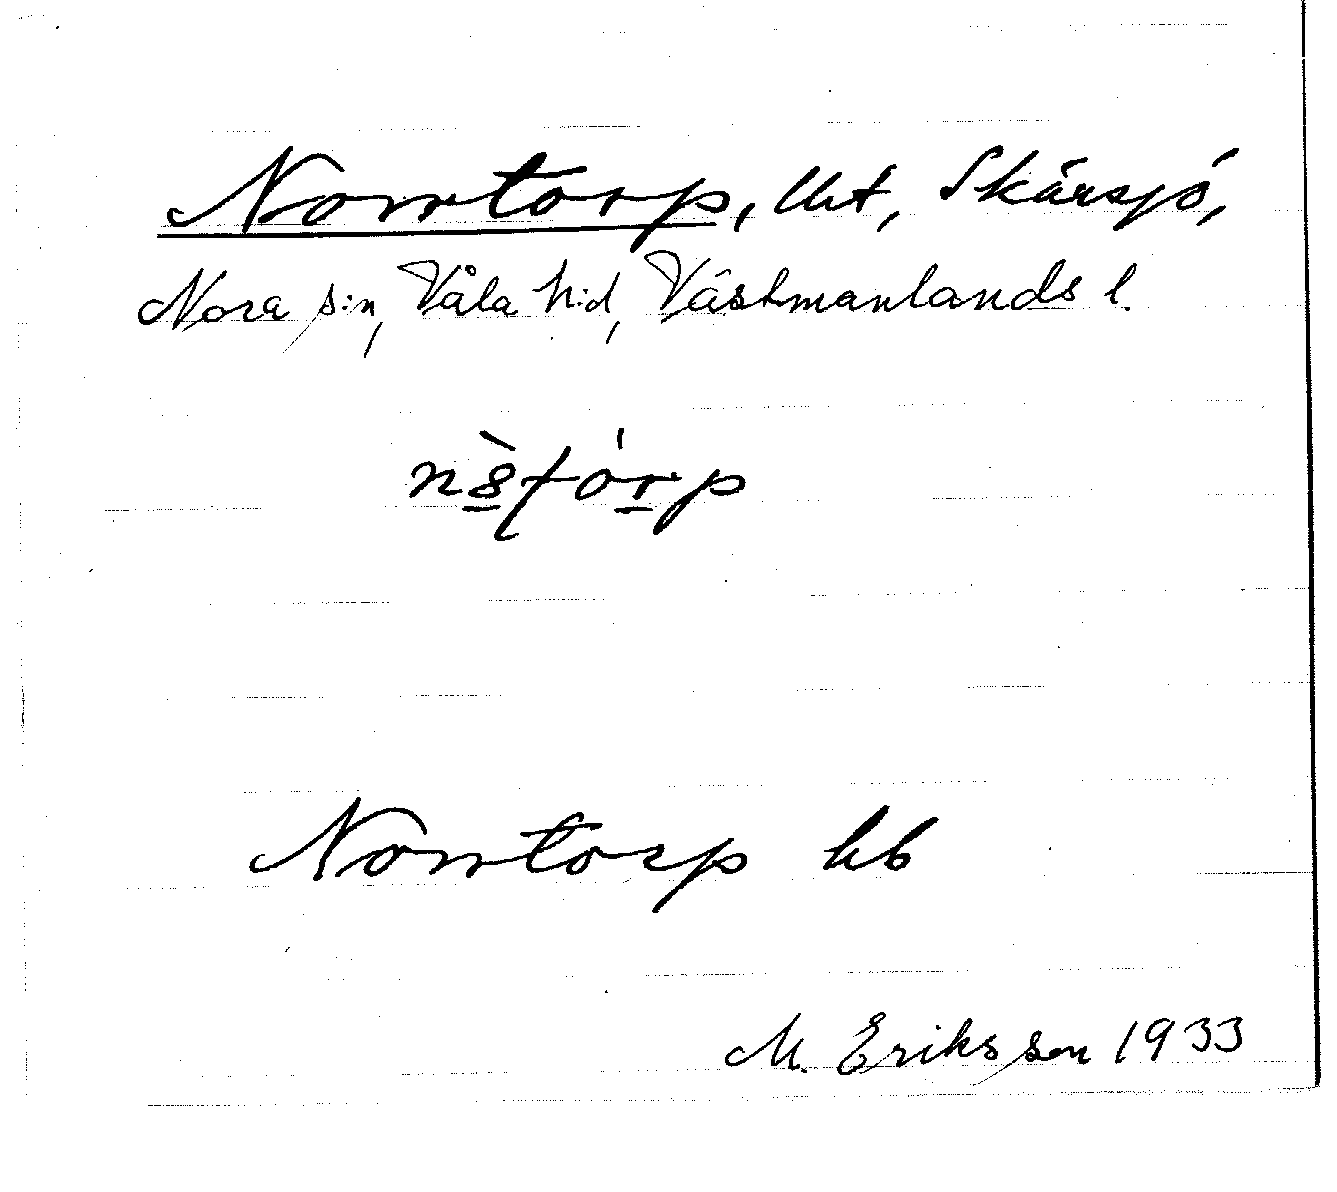 Norrtorp, Utt, Skärsjö,
Nora s:n, Våla h:d, Västmanlands l.
Norrtorp hb
M. Eriksson 1933